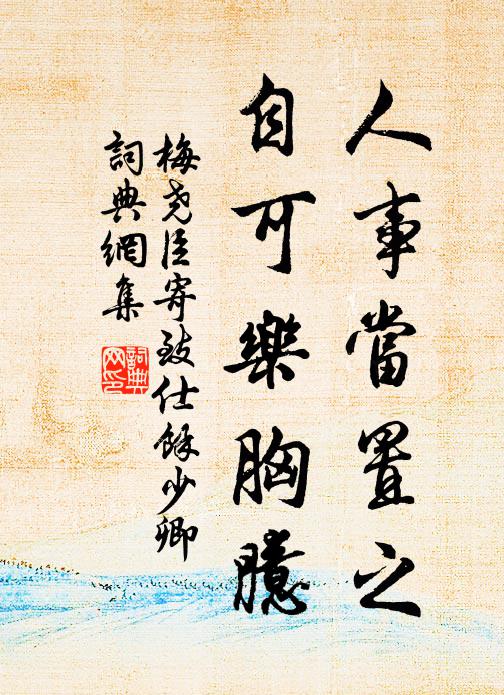 人事當置之
自可樂胸臆
梅堯臣寄致仕餘少卿
詞典網集
詞典網印